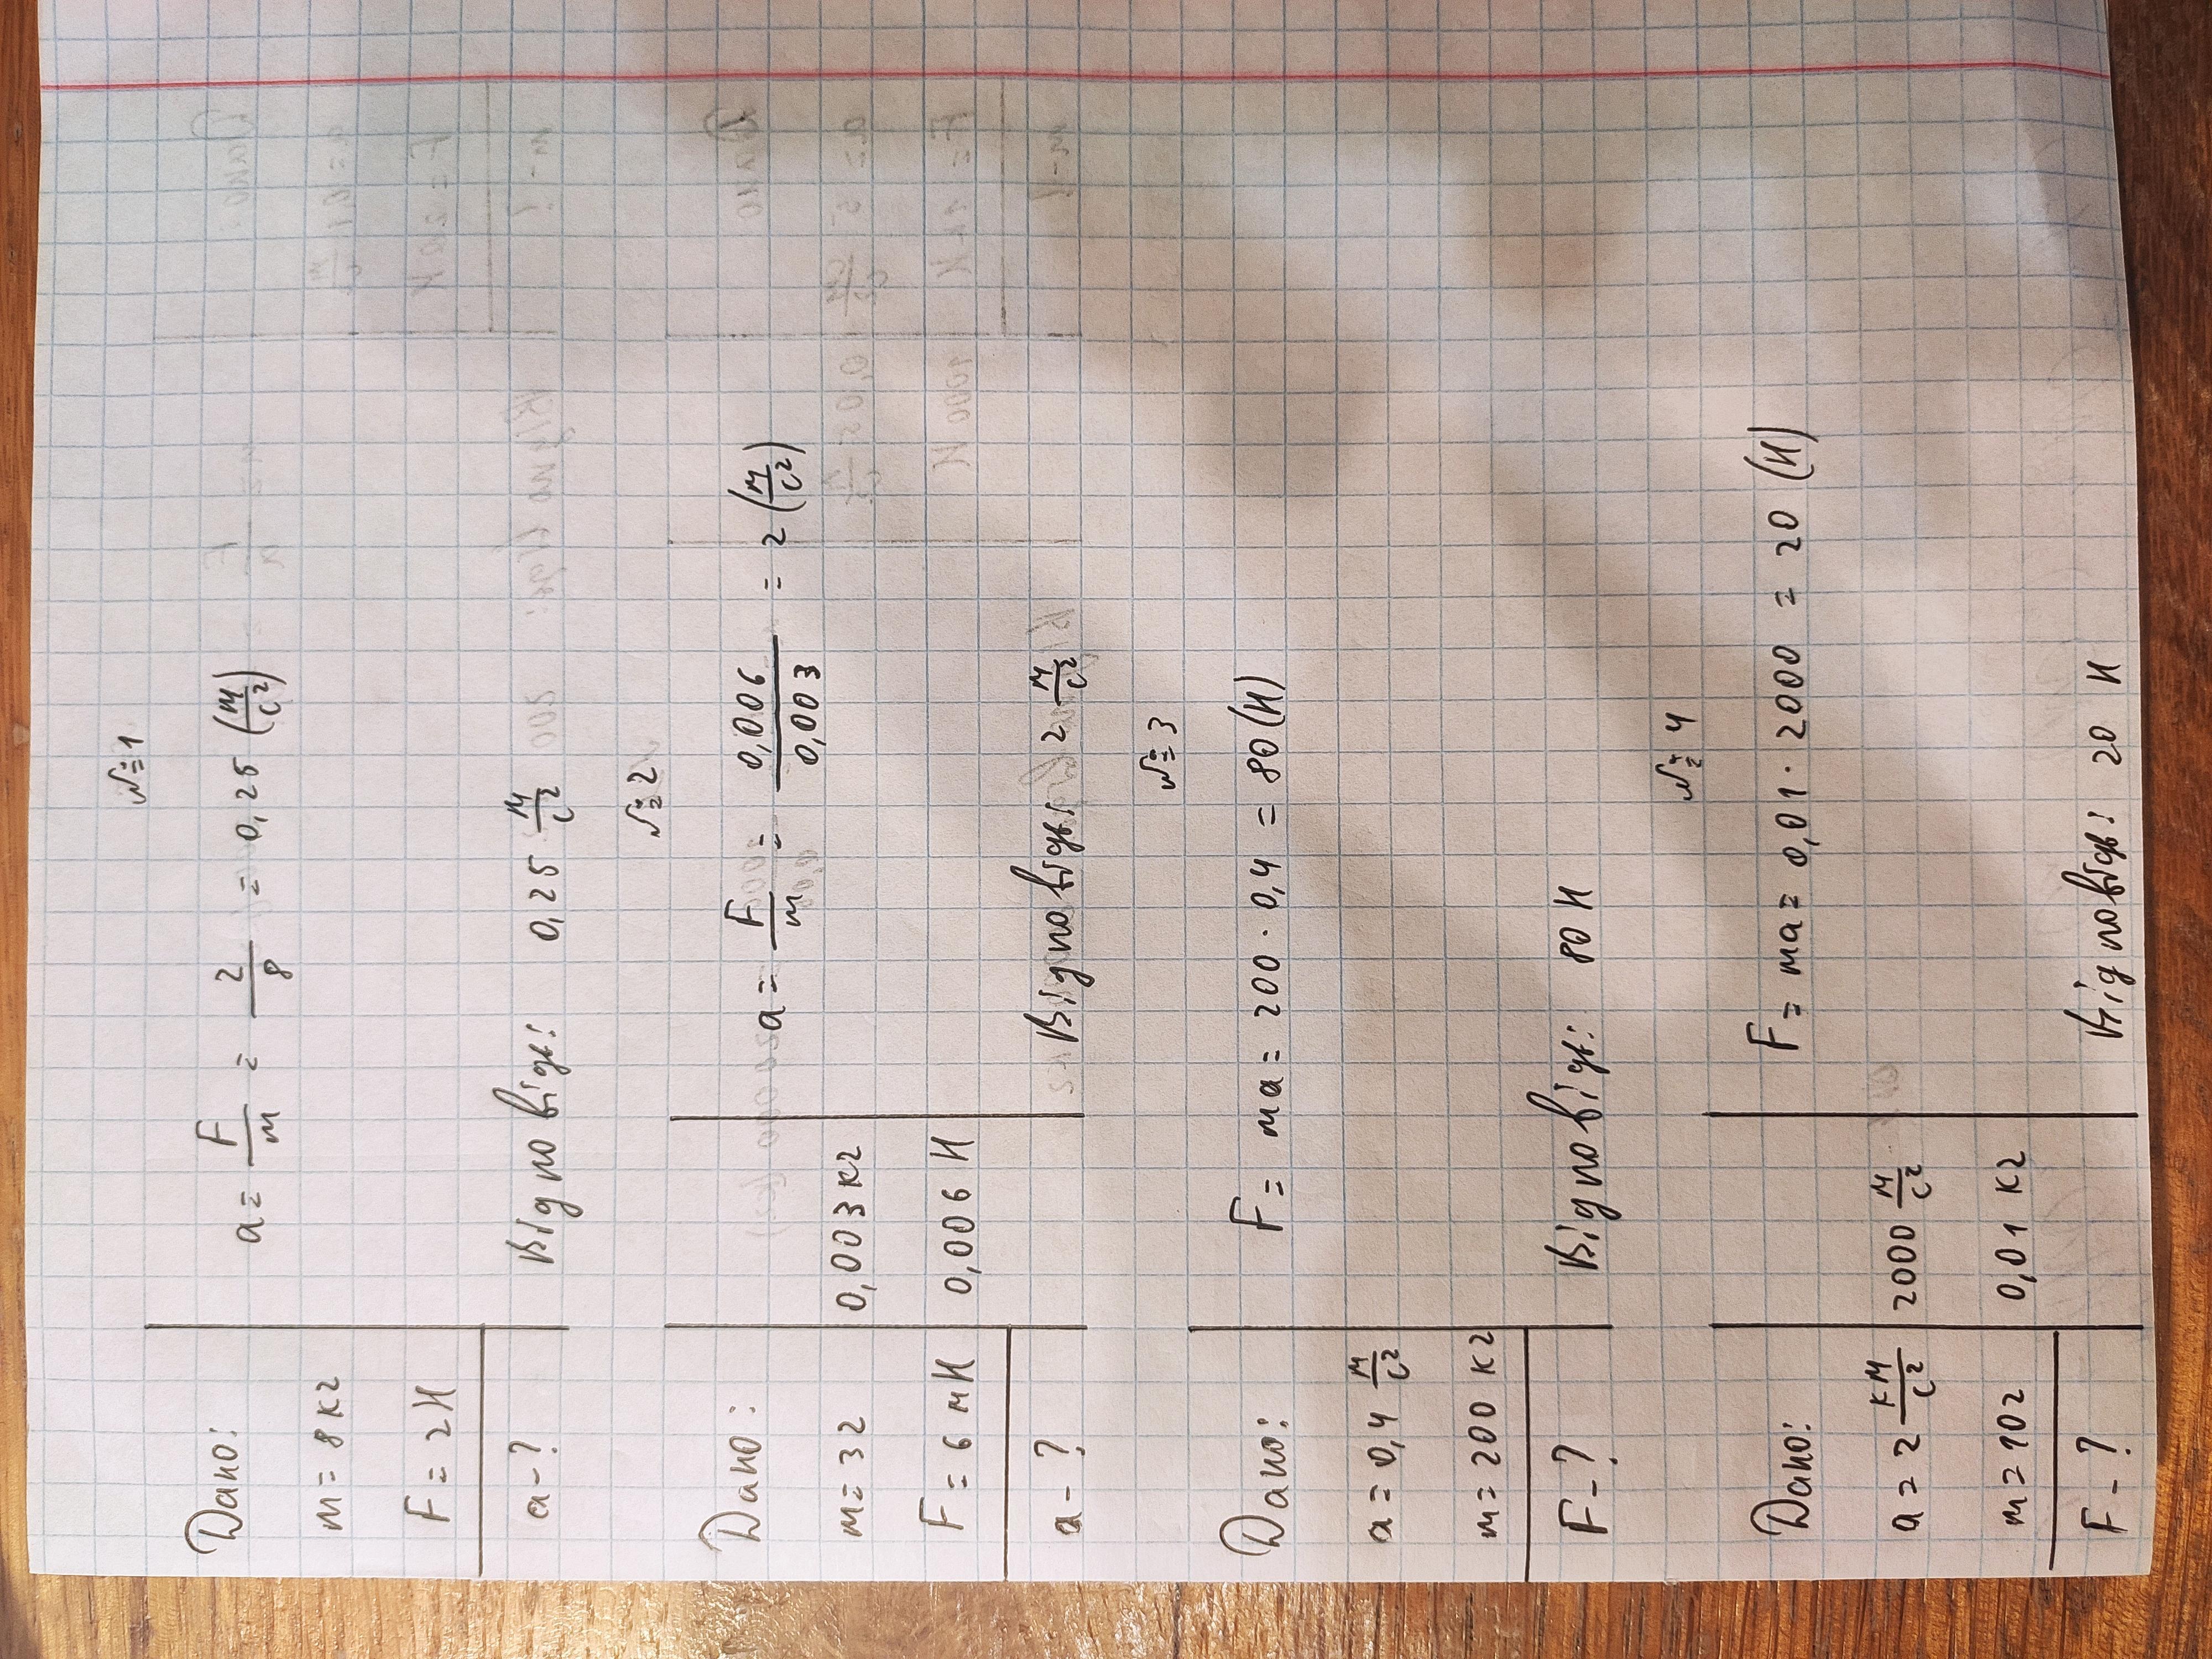 №1
Дано:
m = 8 кг
F = 2 Н
a - ?
a = F/m = 2/8 = 0,25 (м/с²)
Відповідь: 0,25 м/с²
№2
Дано:
m = 3 г 0,003 кг
F = 6 мН 0,006 Н
a - ?
a = F/m = 0,006/0,003 = 2 (м/с²)
Відповідь: 2 м/с²
№3
Дано:
a = 0,4 м/с²
m = 200 кг
F - ?
F = ma = 200 · 0,4 = 80 (Н)
Відповідь: 80 Н
№4
Дано:
a = 2 км/с² 2000 м/с²
m = 10 г 0,01 кг
F - ?
F = ma = 0,01 · 2000 = 20 (Н)
Відповідь: 20 Н